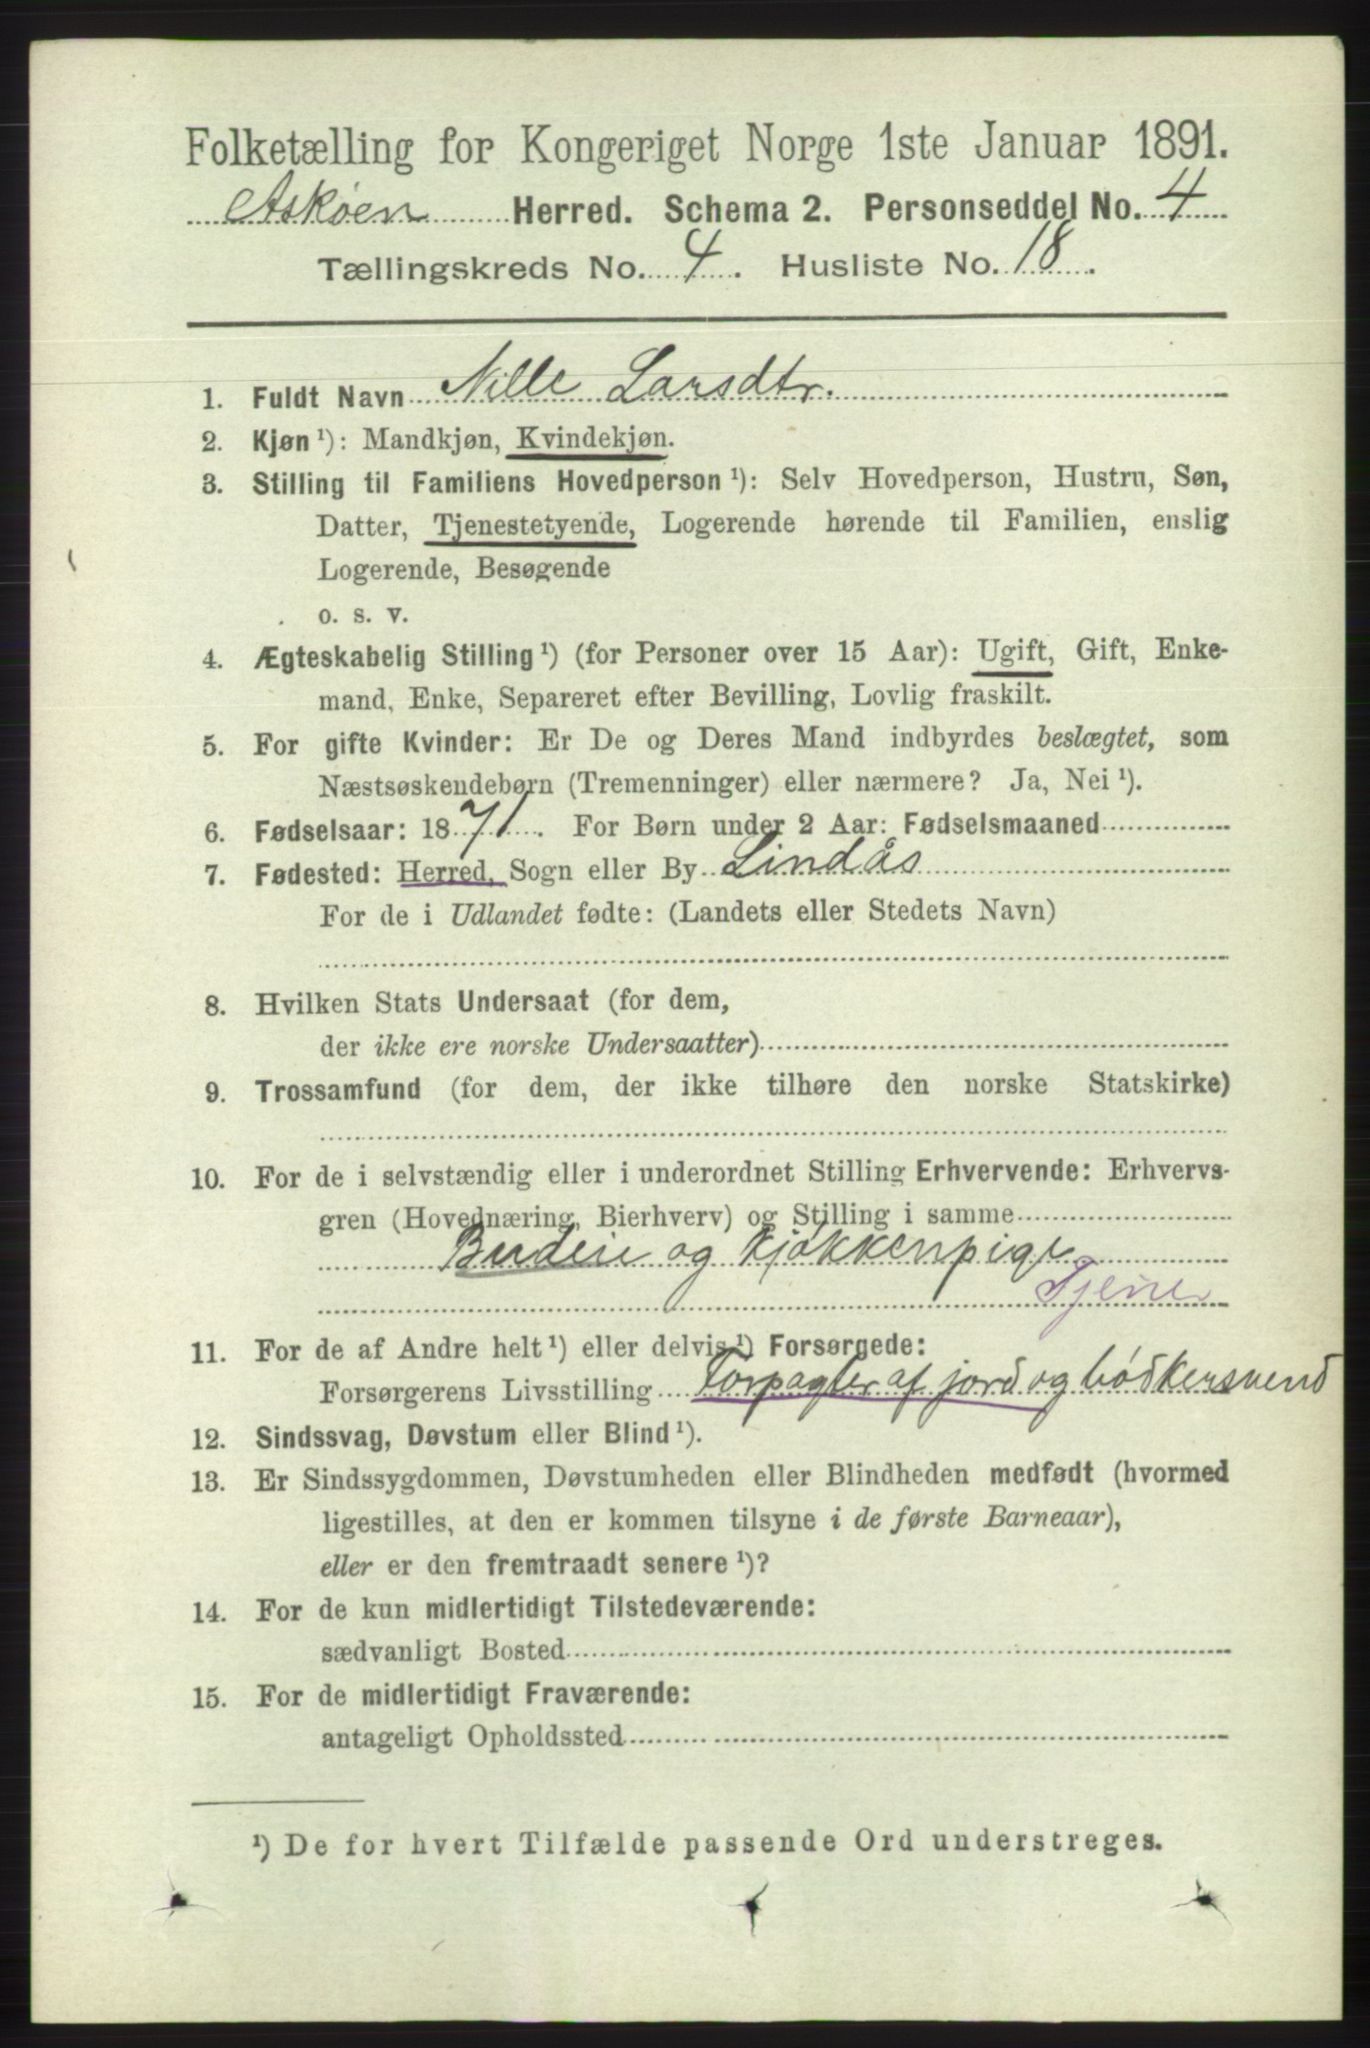 Folketælling for Kongeriget Norge 1ste Januar 1891.
Askøen Herred. Schema 2. Personseddel No. 4
Tællingskreds No. 4. Husliste No. 18.
1. Fuldt Navn Nille Larsdtr.
2. Kjøn ¹): Mandkjøn, Kvindekjøn.
3. Stilling til Familiens Hovedperson ¹): Selv Hovedperson, Hustru, Søn,
Datter, Tjenestetyende, Logerende hørende til Familien, enslig
Logerende, Besøgende
o. s. v.
4. Ægteskabelig Stilling ¹) (for Personer over 15 Aar): Ugift, Gift, Enke-
mand, Enke, Separeret efter Bevilling, Lovlig fraskilt.
5. For gifte Kvinder: Er De og Deres Mand indbyrdes beslægtet, som
Næstsøskendebørn (Tremenninger) eller nærmere? Ja, Nei ¹).
6. Fødselsaar: 1871. For Børn under 2 Aar: Fødselsmaaned
7. Fødested: Herred, Sogn eller By Lindås
For de i Udlandet fødte: (Landets eller Stedets Navn)
8. Hvilken Stats Undersaat (for dem,
der ikke ere norske Undersaatter)
9. Trossamfund (for dem, der ikke tilhøre den norske Statskirke)
10. For de i selvstændig eller i underordnet Stilling Erhvervende: Erhvervs-
gren (Hovednæring, Bierhverv) og Stilling i samme
Budeie og kjøkkenpige
Tjener
11. For de af Andre helt ¹) eller delvis ¹) Forsørgede:
Forsørgerens Livsstilling Forpagter af jord og bødkersvend
12. Sindssvag, Døvstum eller Blind ¹).
13. Er Sindssygdommen, Døvstumheden eller Blindheden medfødt (hvormed
ligestilles, at den er kommen tilsyne i de første Barneaar),
eller er den fremtraadt senere ¹)?
14. For de kun midlertidigt Tilstedeværende:
sædvanligt Bosted
15. For de midlertidigt Fraværende:
antageligt Opholdssted
¹) De for hvert Tilfælde passende Ord understreges.